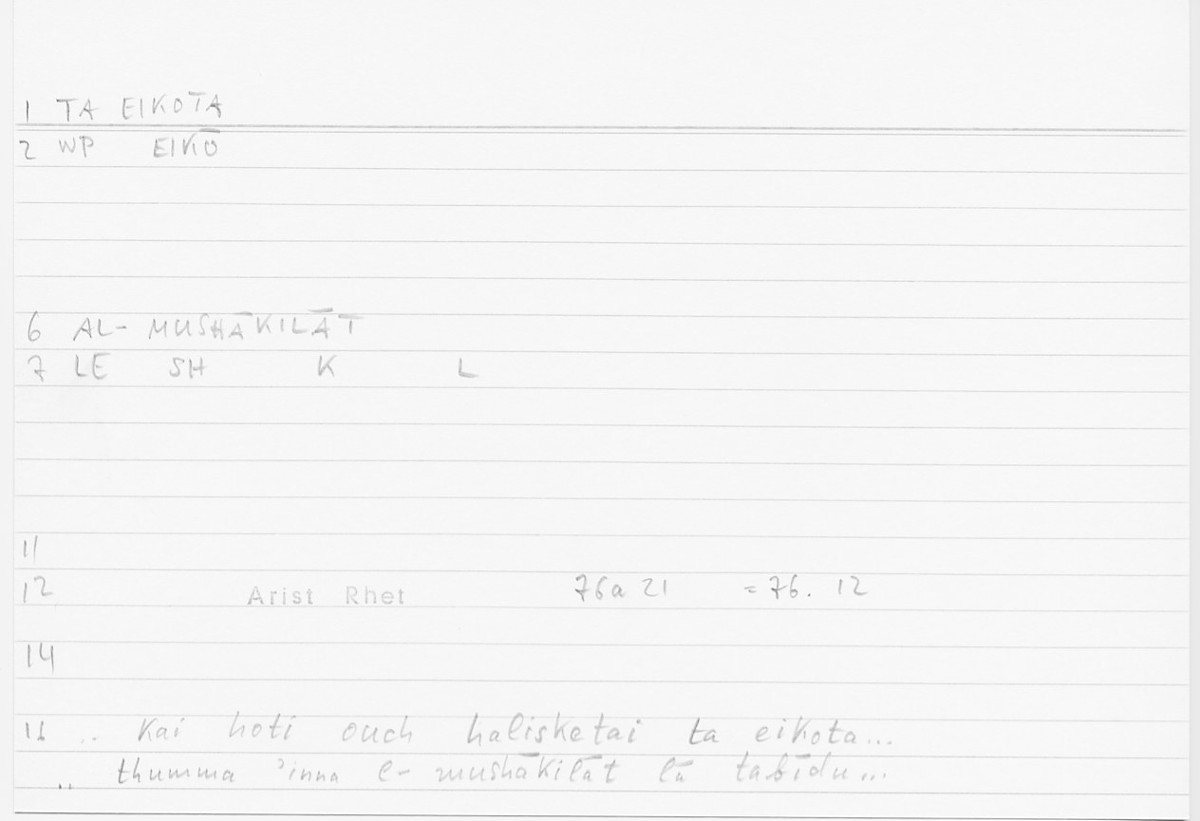 1 TA EIKOTA
2 WP EIKŌ
6 AL- MUSHĀKILĀT
7 LE SH K L
11
12 Arist Rhet 76a 21 = 76. 12
14
.. kai hoti ouch halisketai ta eikota...
.. thumma 'inna e- mushākilāt lā tabīdu...